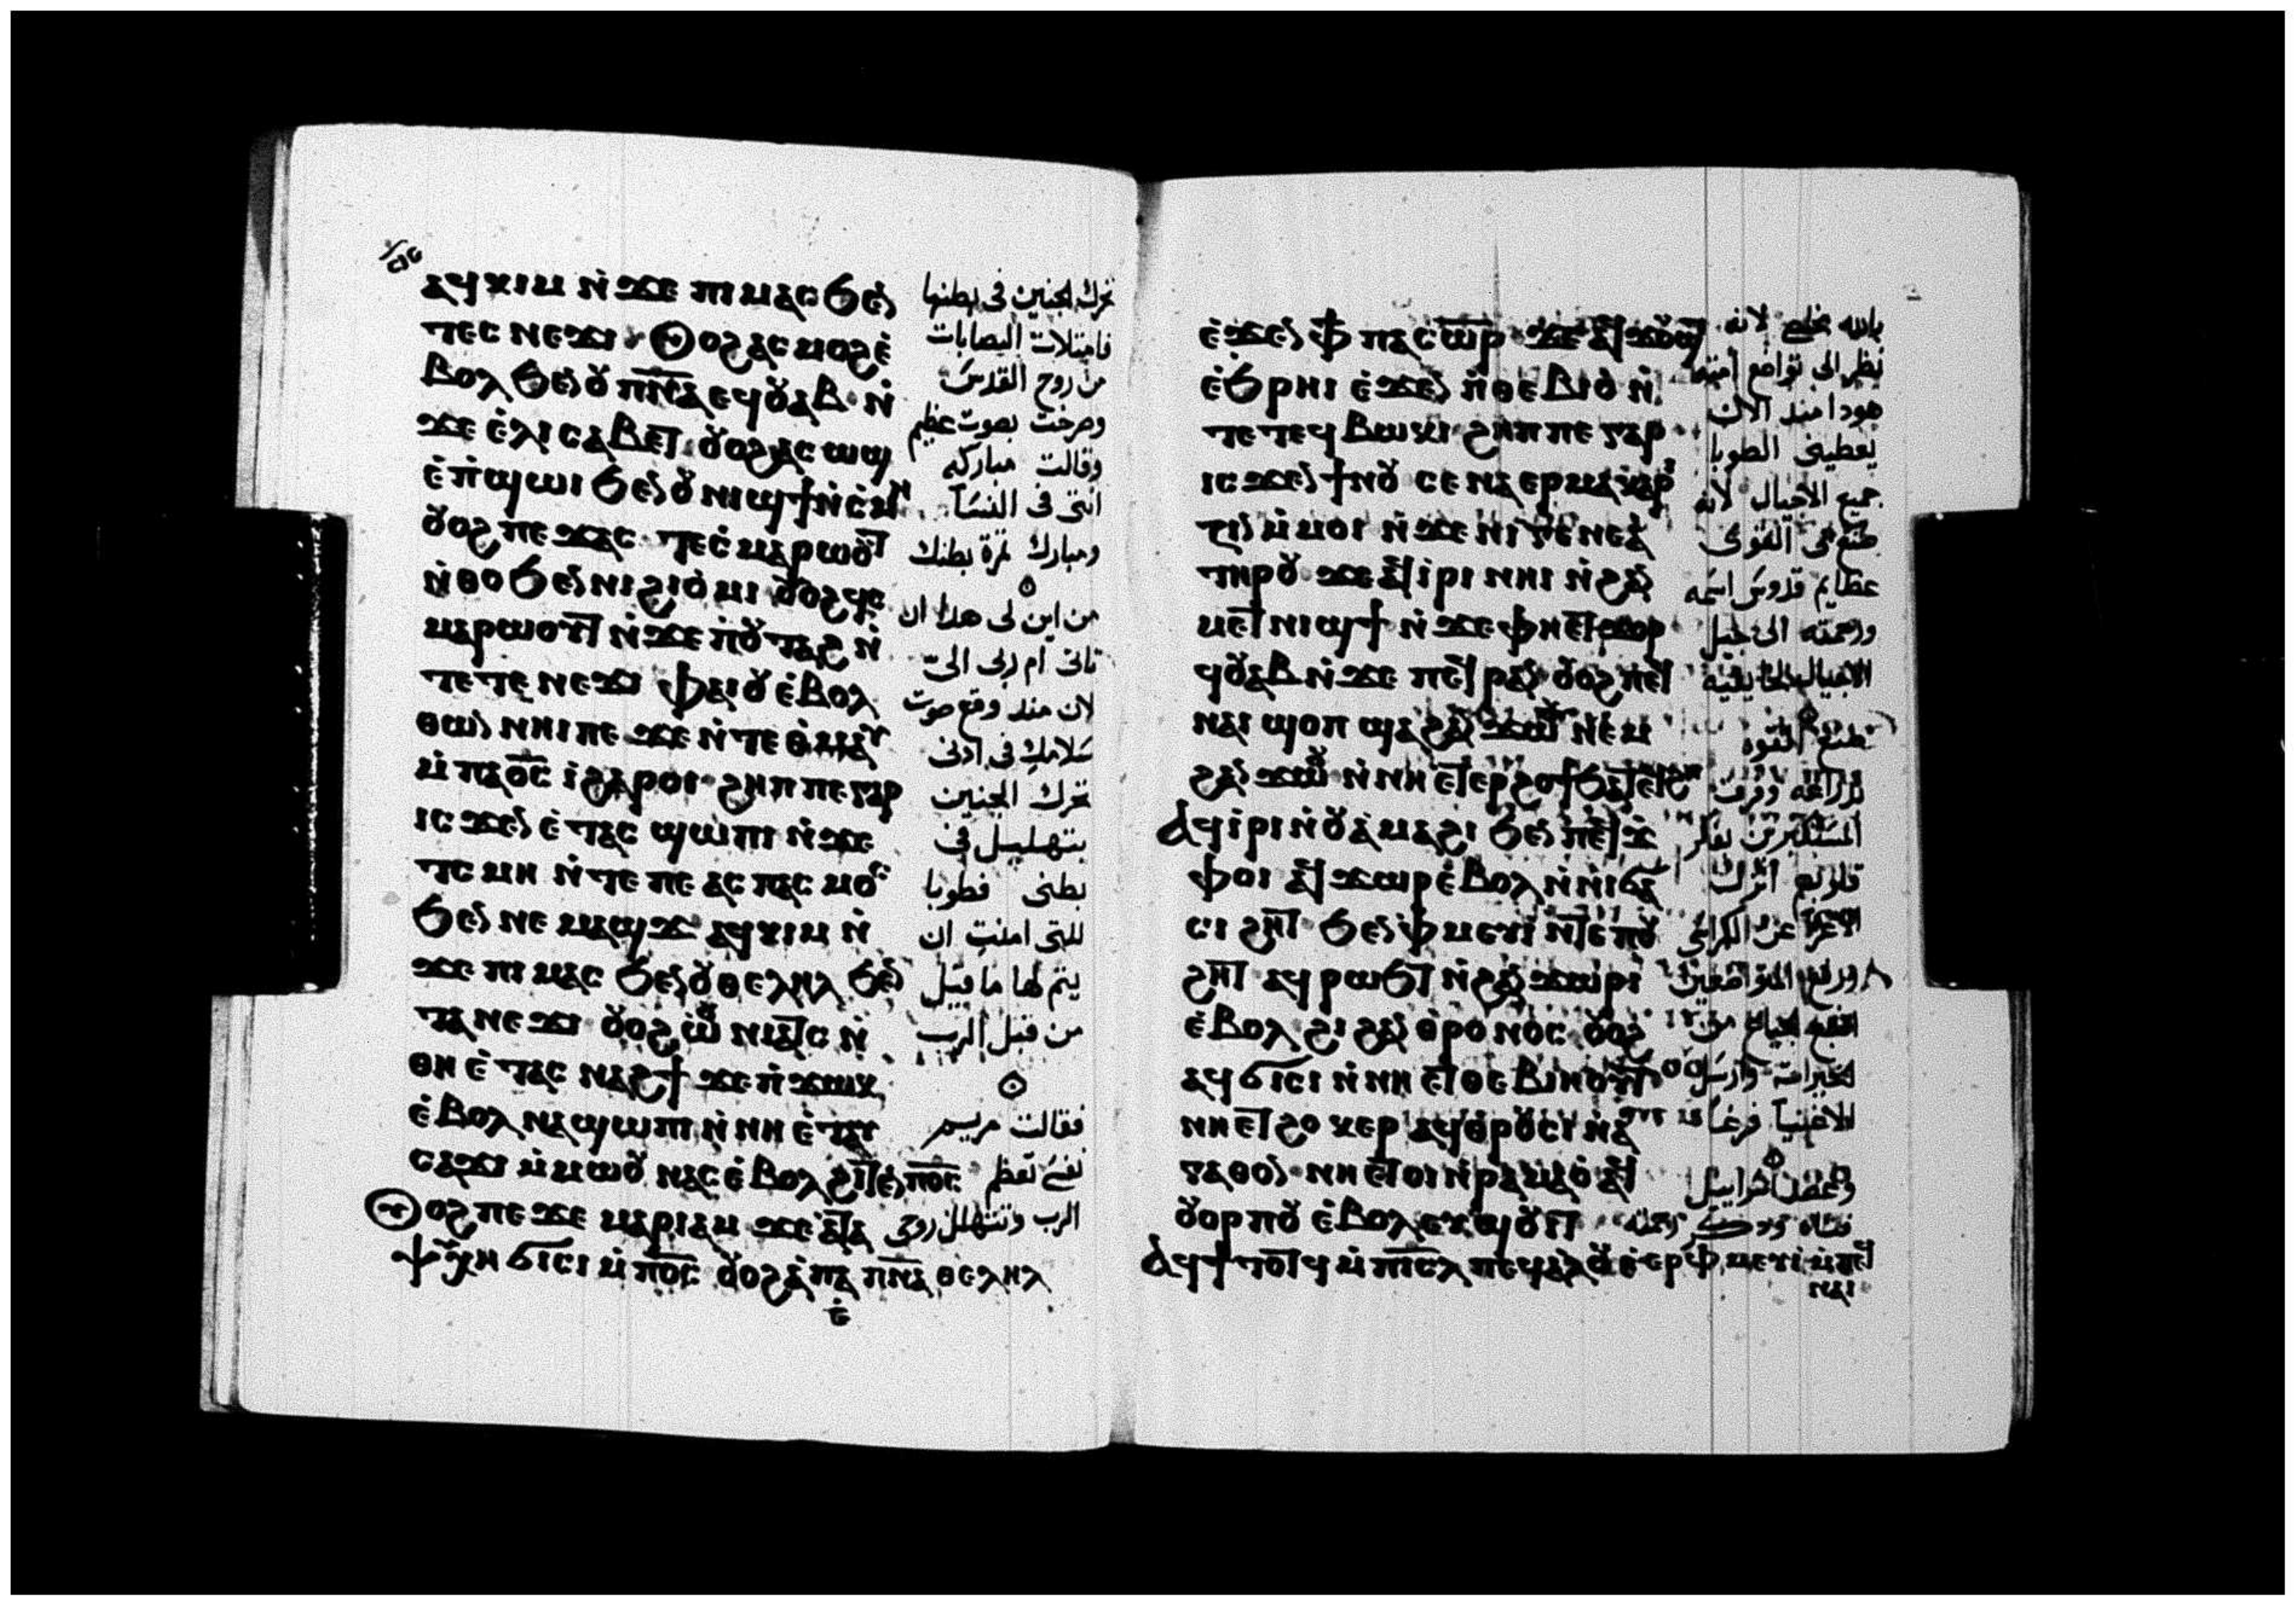 ⲁϥⲕⲓⲙ ⲛ̀ϫⲉ ⲡⲓⲙⲁⲥ ϧⲉⲛ
ⲧⲉⲥⲛⲉϫⲓ ⲟⲩⲟϩ ⲁⲥⲙⲟϩ ⲉ̀
ⲃⲟⲗ ϧⲉⲛ ⲟⲩ ⲡ̅ⲛ̅ⲁ̅ ⲉϥⲟⲩⲁⲃ ⲛ̀
ϫⲉ ⲉ̀ⲗⲓⲥⲁⲃⲉⲧ ⲟⲩⲟϩ ⲁⲥⲱϣ
ⲉ̀ⲡ̀ϣⲱⲓ ϧⲉⲛ ⲟⲩⲛⲓϣϯ ⲛ̀ⲥ̀ⲙⲏ
ⲟⲩⲟϩ ⲡⲉϫⲁⲥ ⲧⲉⲥ̀ⲙⲁⲣⲱⲟⲩⲧ
ⲛ̀ⲑⲟ ϧⲉⲛ ⲛⲓϩⲓⲟ̀ⲙⲓ ⲟⲩⲟϩ ϥ̀ⲥ
ⲙⲁⲣⲱⲟⲩⲧ ⲛ̀ϫⲉ ⲡ̀ⲟⲩⲧⲁϩ ⲛ̀
ⲧⲉ ⲧⲉⲛⲉϫⲓ ⲫⲁⲓ ⲟⲩ ⲉ̀ⲃⲟⲗ
ⲑⲱⲛ ⲛⲏⲓ ⲡⲉ ϫⲉ ⲛ̀ⲧⲉ ⲑ̀ⲙⲁⲩ
ⲙ̀ⲡⲁⲟ̅ⲥ̅ ⲓ̀ ϩⲁⲣⲟⲓ ϩⲏⲡⲡⲉ ⲅⲁⲣ
ⲓⲥϫⲉⲛ ⲉ̀ⲧⲁⲥϣⲱⲡⲓ ⲛ̀ϫⲉ
ⲧⲥⲙⲏ ⲛ̀ⲧⲉ ⲡⲉⲁⲥⲡⲁⲥⲙⲟⲥ
ϧⲉⲛ ⲛⲉⲙⲁϣϫ ⲁϥⲕⲓⲙ ⲛ̀
ϫⲉ ⲡⲓⲙⲁⲥ ϧⲉⲛ ⲟⲩⲑⲉⲗⲏⲗ ϧⲉⲛ
ⲧⲁⲛⲉϫⲓ ⲟⲩⲟϩ ⲱⲟⲩⲛⲓⲁⲧⲥ ⲛ̀
ⲑⲏ ⲉ̀ⲧⲁⲥⲛⲁϩϯ ϫⲉ ⲡ̀ϫⲱⲕ
ⲉ̀ⲃⲟⲗ ⲛⲁϣⲱⲡⲓ ⲛ̀ⲛⲏ ⲉ̀ⲧⲁⲩ
ⲥⲁϫⲓ ⲙ̀ⲙⲱⲟⲩ ⲛⲁⲥ ⲉ̀ⲃⲟⲗ ϩⲓⲧⲉⲛ ⲡⲟ̅ⲥ̅
ⲟⲩⲟϩ ⲡⲉϫⲉ ⲙⲁⲣⲓⲁⲙ ϫⲉ ⲁ̀ⲧⲁ
ⲯⲩⲭⲏ ϭⲓⲥⲓ ⲙ̀ⲡⲟ̅ⲥ̅ ⲟⲩⲟϩ ⲁ̀ⲡⲁ ⲡ̅ⲛ̅ⲁ̅ ⲑⲉⲗⲏⲗ
تحرك الجنين في بطنها
فامتلات اليصابات
من روح القدس
وصرخت بصوت عظيم
وقالت مباركه
انتى فى النسآ
ومبارك ثمرة بطنك
من اين لى هدا ان
تاتى ام ربى الىّ
لان مند وقع صوت
سلامك فى ادنى
تحرك الجنين
بتهليل فى
بطنى فطوبا
للتى امنت ان
يتم لها ما قيل
من قبل الرب
فقالت مريم
نفسى تعظم
الرب وتتهلل روحى
ⲉ̀ϫⲉⲛ ⲫϯ ⲡⲁⲥⲱⲧⲏⲣ ϫⲉ ⲁϥϫⲟⲩϣⲧ
ⲉ̀ϧⲣⲏⲓ ⲉ̀ϫⲉⲛ ⲡ̀ⲑⲉⲃⲓⲟ̀ ⲛ̀
ⲧⲉ ⲧⲉϥⲃⲱⲕⲓ ϩⲏⲡⲡⲉ ⲅⲁⲣ
ⲓⲥϫⲉⲛ ϯⲛⲟⲩ ⲥⲉⲛⲁⲉⲣⲙⲁⲕⲁⲣⲓ
ⲍⲓⲛ ⲙ̀ⲙⲟⲓ ⲛ̀ϫⲉ ⲛⲓⲅⲉⲛⲉⲁ̀
ⲧⲏⲣⲟⲩ ϫⲉ ⲁϥⲓ̀ⲣⲓ ⲛⲏⲓ ⲛ̀ϩⲁⲛ
ⲙⲉⲧⲛⲓϣϯ ⲛ̀ϫⲉ ⲫⲏⲉⲧϫⲟⲣ
ϥⲟⲩⲁⲃ ⲛ̀ϫⲉ ⲡⲉϥⲣⲁⲛ ⲟⲩⲟϩ ⲡⲉϥ
ⲛⲁⲓ ϣⲟⲡ ϣⲁ ϩⲁⲛϫⲱⲟⲩ ⲛⲉⲙ
ϩⲁⲛϫⲱⲟⲩ ⲛ̀ⲛⲏ ⲉⲧⲉⲣϩⲟϯ ϧⲁⲧⲉϥϩⲏ
ⲁϥⲓ̀ⲣⲓ ⲛ̀ⲟⲩⲁ̀ⲙⲁϩⲓ ϧⲉⲛ ⲡⲉϥϫ̀
ⲫⲟⲓ ⲁϥϫⲱⲣ ⲉ̀ⲃⲟⲗ ⲛ̀ⲛⲓϭⲁ
ⲥⲓϩⲏⲧ ϧⲉⲛ ⲫ̀ⲙⲉⲩⲓ̀ ⲛ̀ⲧⲉ ⲡⲟⲩ
ϩⲏⲧ ⲁϥⲣⲱϧⲧ ⲛ̀ϩⲁⲛϫⲱⲣⲓ
ⲉ̀ⲃⲟⲗ ϩⲓ ϩⲁⲛⲑⲣⲟⲛⲟⲥ ⲟⲩⲟϩ
ⲁϥϭⲓⲥⲓ ⲛ̀ⲛⲏ ⲉⲧⲑⲉⲃⲓⲏⲟⲩⲧ
ⲛⲏ ⲉⲧϩⲟⲕⲉⲣ ⲁϥⲑⲣⲟⲩⲥⲓ ⲛ̀ⲁ̀
ⲅⲁⲑⲟⲛ ⲛⲏ ⲉⲧⲟⲓ ⲛ̀ⲣⲁⲙⲁⲟ̀ ⲁϥ
ⲟⲩⲟⲣⲡⲟⲩ ⲉ̀ⲃⲟⲗ ⲉⲩϣⲟⲩⲓⲧ
ⲁϥϯⲧⲟⲧϥ ⲙ̀ⲡⲓⲥ̅ⲗ̅ ⲡⲉϥⲁⲗⲟⲩ ⲉ̀ⲉⲣⲫ̀ⲙⲉⲩⲓ̀ ⲙ̀ⲡⲉϥ
ⲛⲁⲓ
بالله مخلصى لانه
نظر الى تواضع امته
هودا مند الان
يعطينى الطوبا
جميع الاجيال لانه
صنع بى القوى
عظايم قدوس اسمه
ورحمته الى جيل
الاجيال لخايفيه
صنع القوه
بدراعه وفرق
المستكبرين بفكر
قلوبهم انزل
الاعزا عن الكراسى
ورفع المتواضعين
اشبع الجياع من
لخيراته وارسل
الاغنيآ فرغا
وعضد اسراييل
فتاه ودكر رحمته